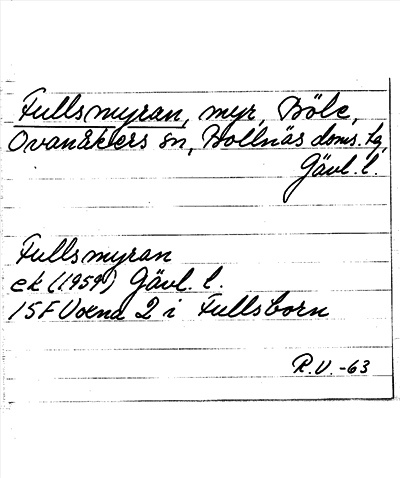 Fullsmyran, myr, Böle,
Ovanåkers sn, Bollnäs doms. tg,
Gävl. l.
Fullsmyran
ek (1959) Gävl. l.
15F Voxna 2 i Fullsborn
R.V. -63